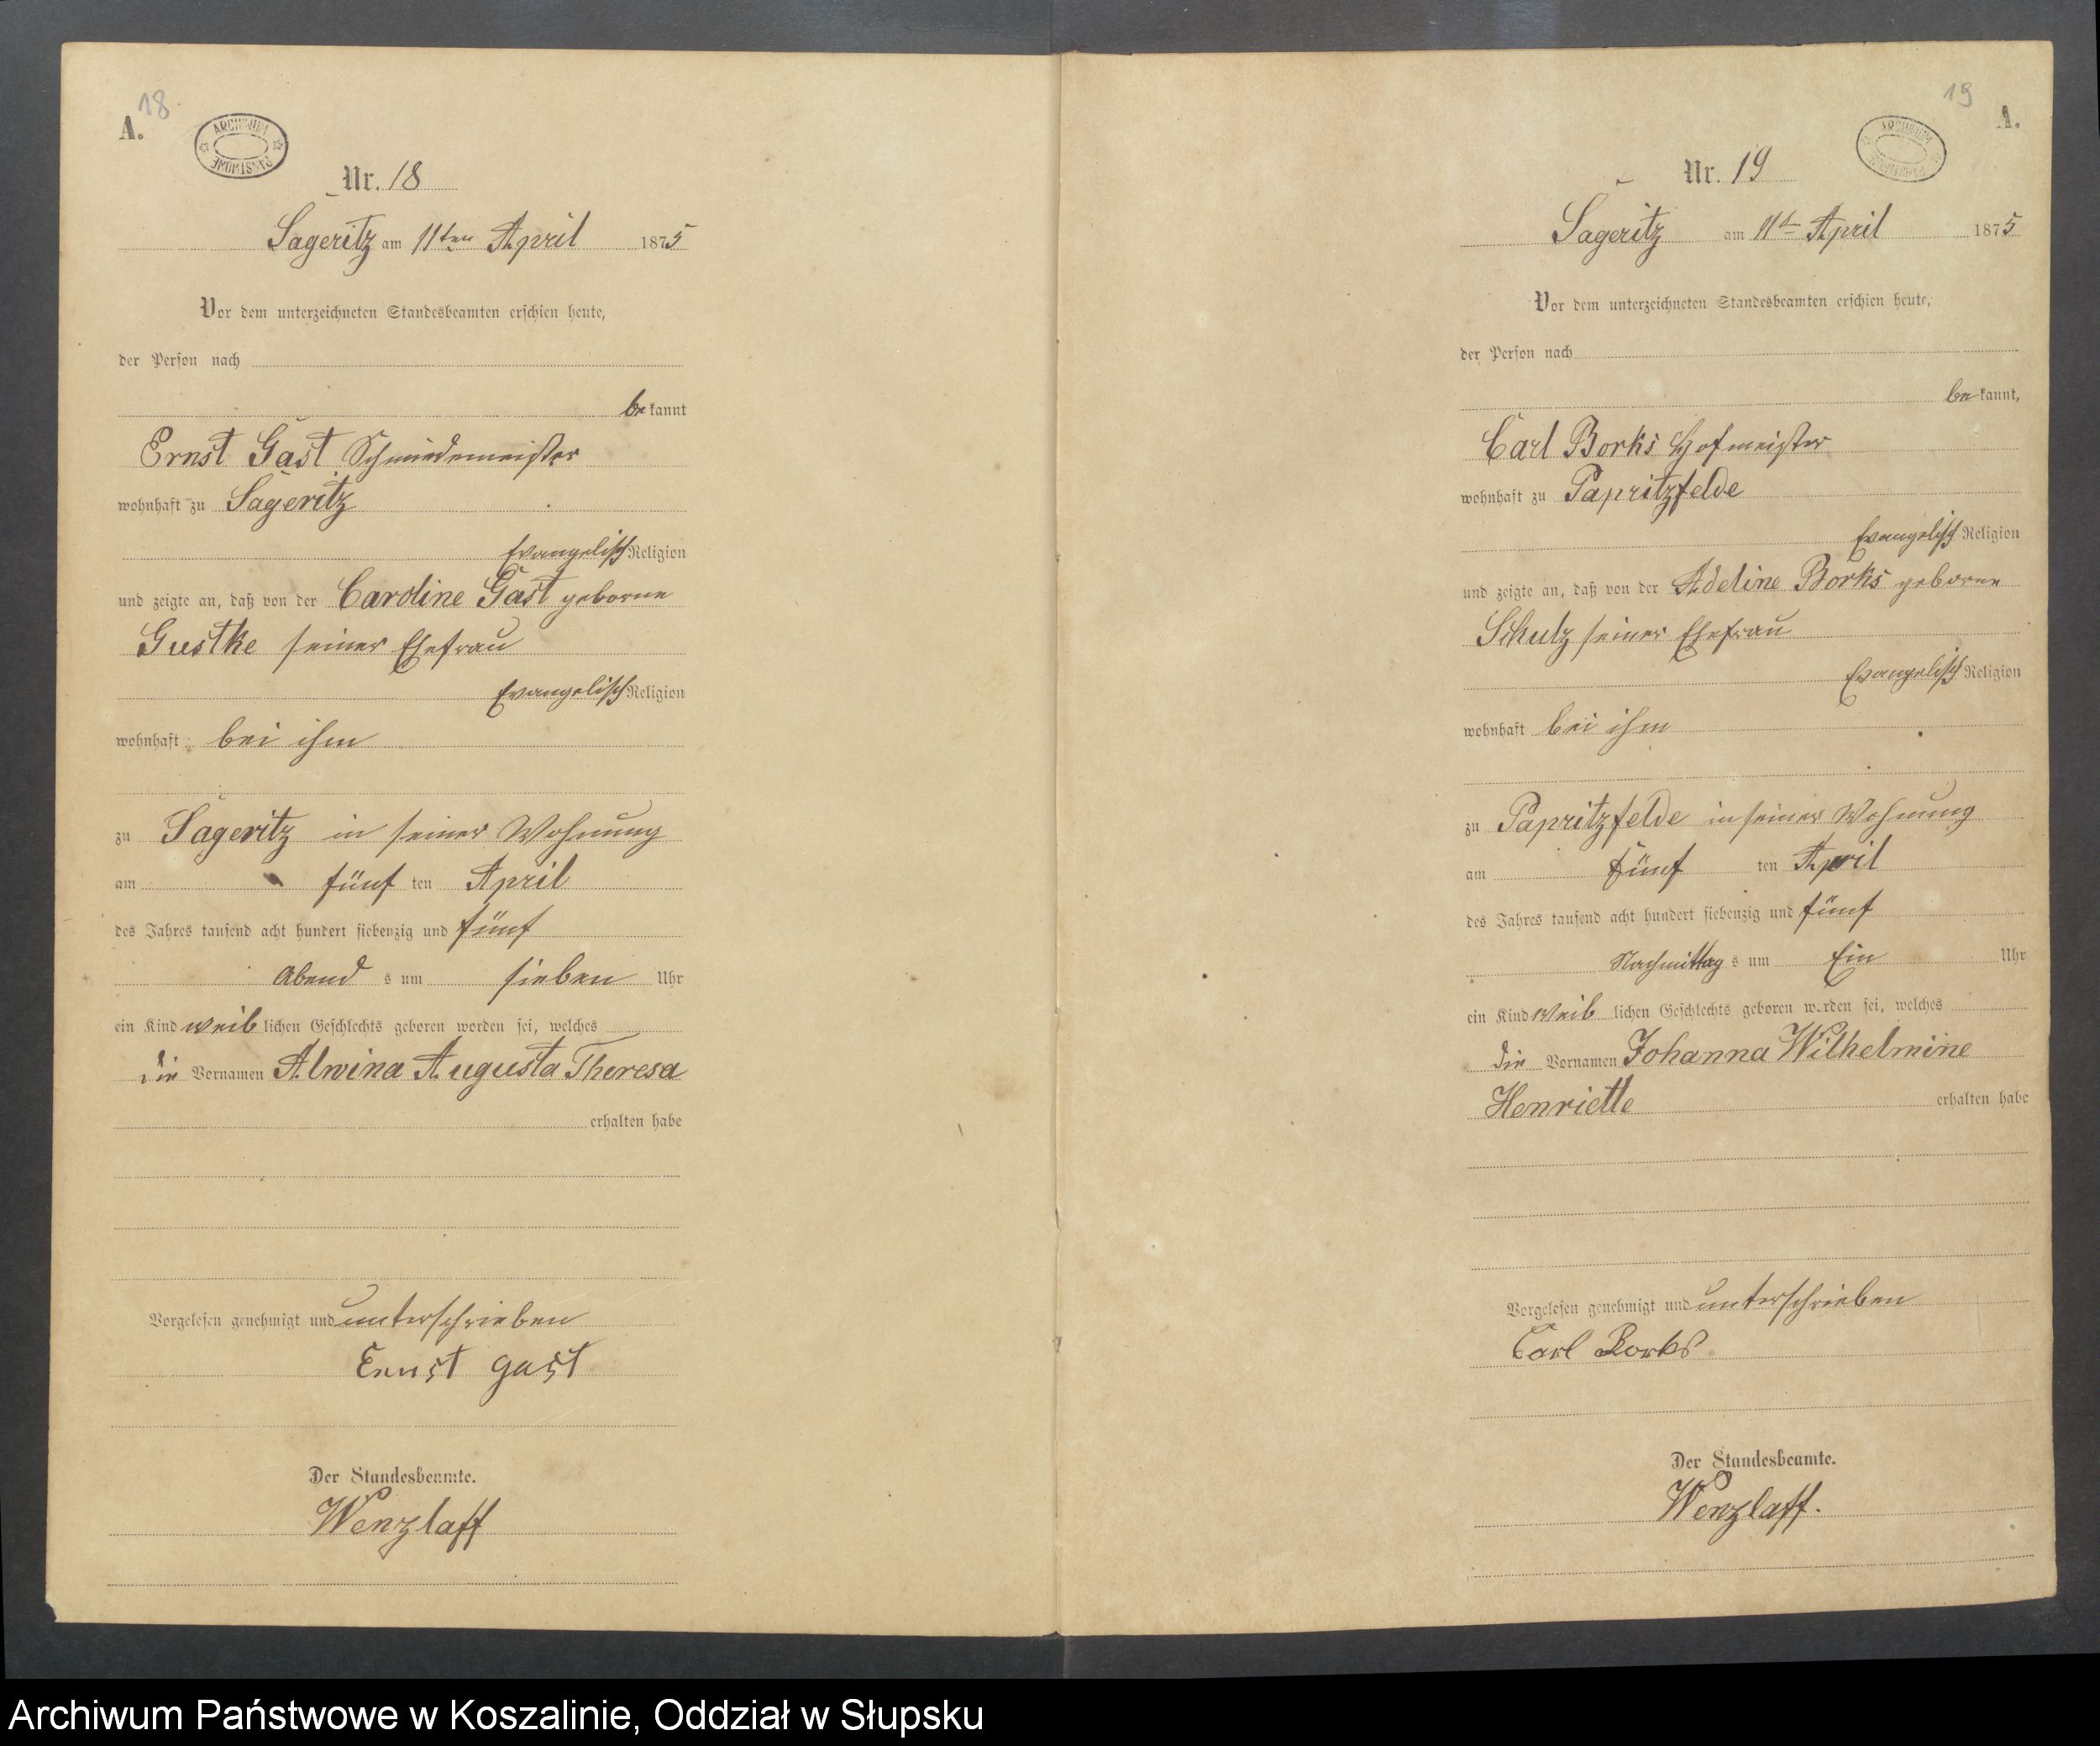 18.
A.
ARCHIWUM
PAŃSTWOWE
Nr. 18
Sageritz am 11ten April 1875
Vor dem unterzeichneten Standesbeamten erschien heute,
der Person nach
bekannt
Ernst Gast Schmiedemeister
wohnhaft zu Sageritz
Evangelisch Religion
und zeigte an, daß von der Caroline Gast geborne
Gustke seiner Ehefrau
Evangelisch Religion
wohnhaft bei ihm
zu Sageritz in seiner Wohnung
am fünf ten April
des Jahres tausend acht hundert siebenzig und fünf
Abend s um sieben Uhr
ein Kind weiblichen Geschlechts geboren worden sei, welches
die Vornamen Alwina Augusta Theresa
erhalten habe
Vorgelesen genehmigt und unterschrieben
Ernst Gast
Der Standesbeamte.
Wenzlaff
19
A.
ARCHIWUM
PAŃSTWOWE
Nr. 19
Sageritz am 11t April 1875
Vor dem unterzeichneten Standesbeamten erschien heute,
der Person nach
bekannt,
Carl Borks Hofmeister
wohnhaft zu Papritzfelde
Evangelisch Religion
und zeigte an, daß von der Adeline Borks geborne
Schulz seiner Ehefrau
Evangelisch Religion
wohnhaft bei ihm
zu Papritzfelde in seiner Wohnung
am fünf ten April
des Jahres tausend acht hundert siebenzig und fünf
Nachmittag s um Ein Uhr
ein Kind weiblichen Geschlechts geboren worden sei, welches
die Vornamen Johanna Wilhelmine
Henriette erhalten habe
Vorgelesen genehmigt und unterschrieben
Carl Borks
Der Standesbeamte.
Wenzlaff.
Archiwum Państwowe w Koszalinie, Oddział w Słupsku